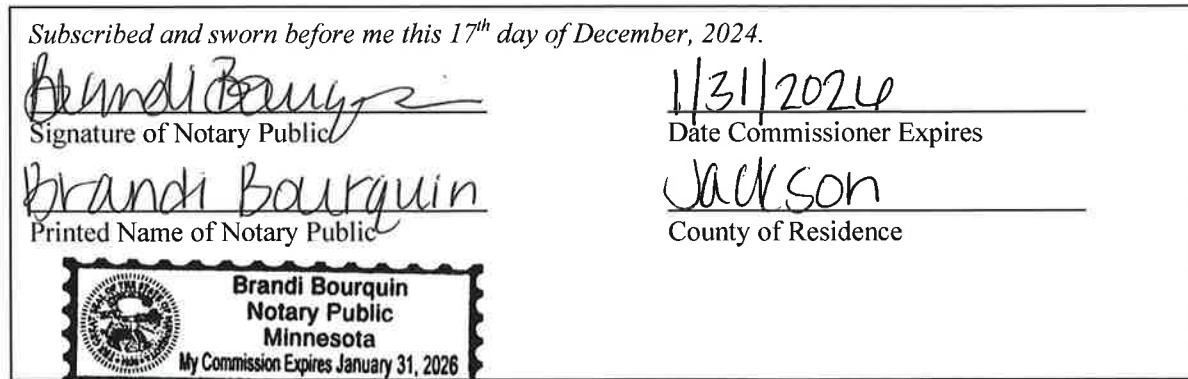 Subscribed and sworn before me this 17th day of December, 2024.
Brandi Bourquin 1/31/2026
Signature of Notary Public Date Commissioner Expires
Brandi Bourquin Jackson
Printed Name of Notary Public County of Residence
Brandi Bourquin
Notary Public
Minnesota
My Commission Expires January 31, 2026